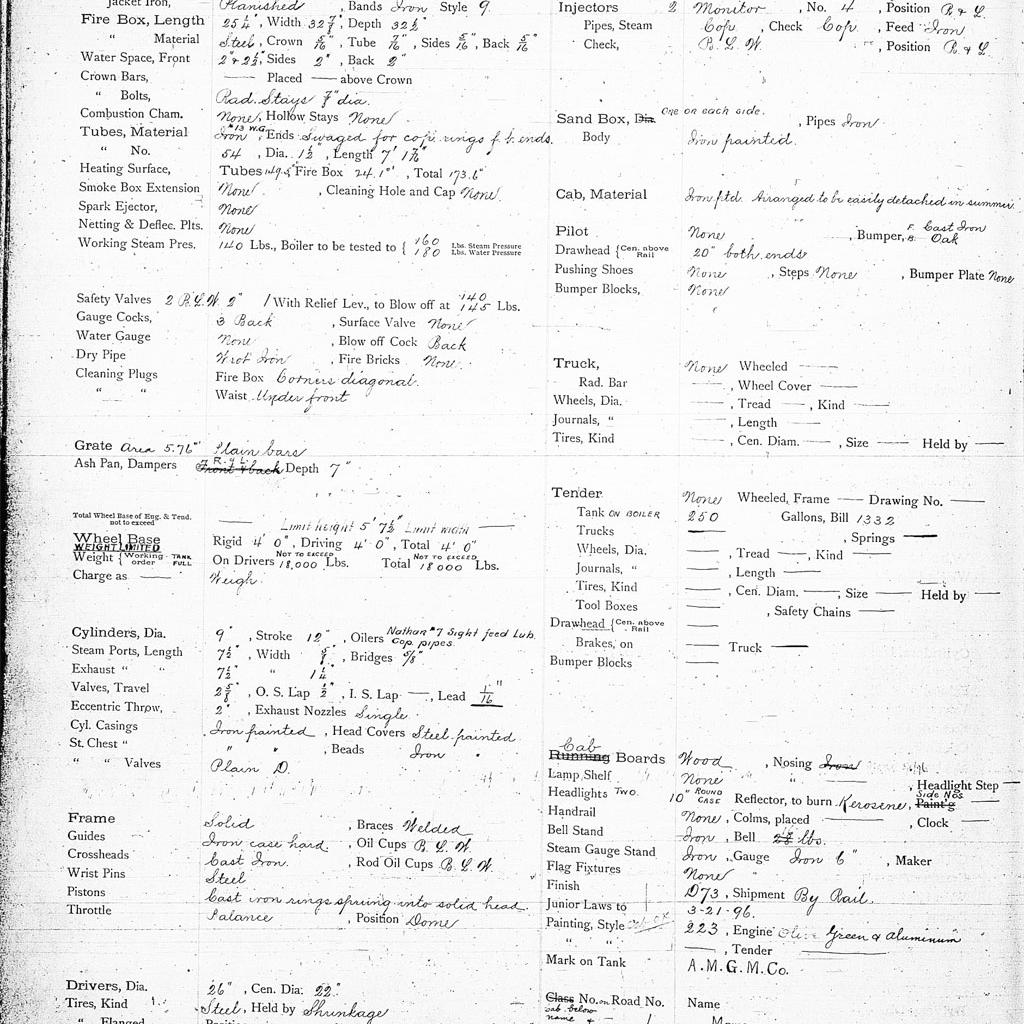 Jacket Iron, Planished , Bands Iron Style 9
Fire Box, Length 25 1/4" , Width 32 7/8" Depth 32 1/2"
" Material Steel , Crown 5/16" , Tube 7/16" , Sides 5/16" , Back 5/16"
Water Space, Front 2" & 2 1/2", Sides 2" , Back 2"
Crown Bars, —— Placed —— above Crown
" Bolts, Rad. Stays 7/8" dia.
Combustion Cham. None, Hollow Stays None
Tubes, Material Iron #13 W.G. , Ends Swaged for cop. rings f. b. ends.
" No. 54 , Dia. 1 1/2" , Length 7'
Heating Surface, Tubes 149.5" Fire Box 24.1" , Total 173.6"
Smoke Box Extension None , Cleaning Hole and Cap None
Spark Ejector, None
Netting & Deflec. Plts. None
Working Steam Pres. 140 Lbs., Boiler to be tested to { 160 Lbs. Steam Pressure
180 Lbs. Water Pressure
Safety Valves 2 B.L.W. 2" 1 With Relief Lev., to Blow off at 140 145 Lbs.
Gauge Cocks, 3 Back , Surface Valve None
Water Gauge None , Blow off Cock Back
Dry Pipe Wrot Iron , Fire Bricks None
Cleaning Plugs Fire Box Corners diagonal.
" " Waist Under front
Grate Area 5.76" Plain bars
Ash Pan, Dampers R. & L. Front & back Depth 7"
Total Wheel Base of Eng. & Tend. not to exceed —— Limit height 5' 7 1/2" Limit width ——
Wheel Base Rigid 4' 0" , Driving 4' 0" , Total 4' 0"
WEIGHT LIMITED
Weight { Working order TANK FULL On Drivers NOT TO EXCEED 18,000 Lbs. Total NOT TO EXCEED 18000 Lbs.
Charge as —— Weigh.
Cylinders, Dia. 9" , Stroke 12" , Oilers Nathan #7 Sight feed Lub. Cop. pipes
Steam Ports, Length 7 1/2" , Width 5/8" , Bridges 5/8"
Exhaust " " 7 1/2" " 1 1/4"
Valves, Travel 2 5/8" , O. S. Lap 1/2" , I. S. Lap — , Lead 1/16"
Eccentric Throw, 2" , Exhaust Nozzles Single
Cyl. Casings Iron painted , Head Covers Steel painted
St. Chest " " " , Beads Iron "
" " Valves Plain D.
Frame Solid , Braces Welded
Guides Iron case hard. , Oil Cups B. L. W.
Crossheads Cast Iron. , Rod Oil Cups B. L. W.
Wrist Pins Steel
Pistons Cast iron rings sprung into solid head.
Throttle Balance , Position Dome
Drivers, Dia. 26" , Cen. Dia. 22"
Tires, Kind Steel, Held by Shrinkage
" Flanged
Injectors 2 Monitor , No. 4 , Position R. & L.
Pipes, Steam Cop. , Check Cop. , Feed Iron
Check, B. L. W. , Position R. & L
Sand Box, Dia. One on each side. , Pipes Iron
Body Iron painted.
Cab, Material Iron ptd. Arranged to be easily detached in summer.
Pilot None , Bumper, F. Cast Iron B. Oak
Drawhead { Cen. above Rail 20" both ends
Pushing Shoes None , Steps None , Bumper Plate None
Bumper Blocks, None
Truck, None Wheeled ——
Rad. Bar —— , Wheel Cover ——
Wheels, Dia. —— , Tread —— , Kind ——
Journals, " —— , Length ——
Tires, Kind —— , Cen. Diam. —— , Size —— Held by ——
Tender None Wheeled, Frame —— Drawing No. ——
Tank ON BOILER 250 Gallons, Bill 1332
Trucks —— , Springs ——
Wheels, Dia. —— , Tread —— , Kind ——
Journals, " —— , Length ——
Tires, Kind —— , Cen. Diam. —— , Size —— Held by ——
Tool Boxes —— , Safety Chains ——
Drawhead { Cen. above Rail ——
Brakes, on —— Truck ——
Bumper Blocks ——
Cab
Running Boards Wood , Nosing Iron
Lamp Shelf None " —— , Headlight Step ——
Headlights Two. 10" ROUND CASE Reflector, to burn Kerosene, Side Nos Paint'g ——
Handrail None , Colms, placed —— , Clock ——
Bell Stand Iron , Bell lbs.
Steam Gauge Stand Iron , Gauge Iron 6" , Maker
Flag Fixtures None "
Finish D73 , Shipment By Rail.
Junior Laws to 3-21-96.
Painting, Style 223 , Engine Olive Green & Aluminum
" " —— , Tender ——
Mark on Tank A. M. G. M. Co.
Class No. on Road No. Name
cab below
name &